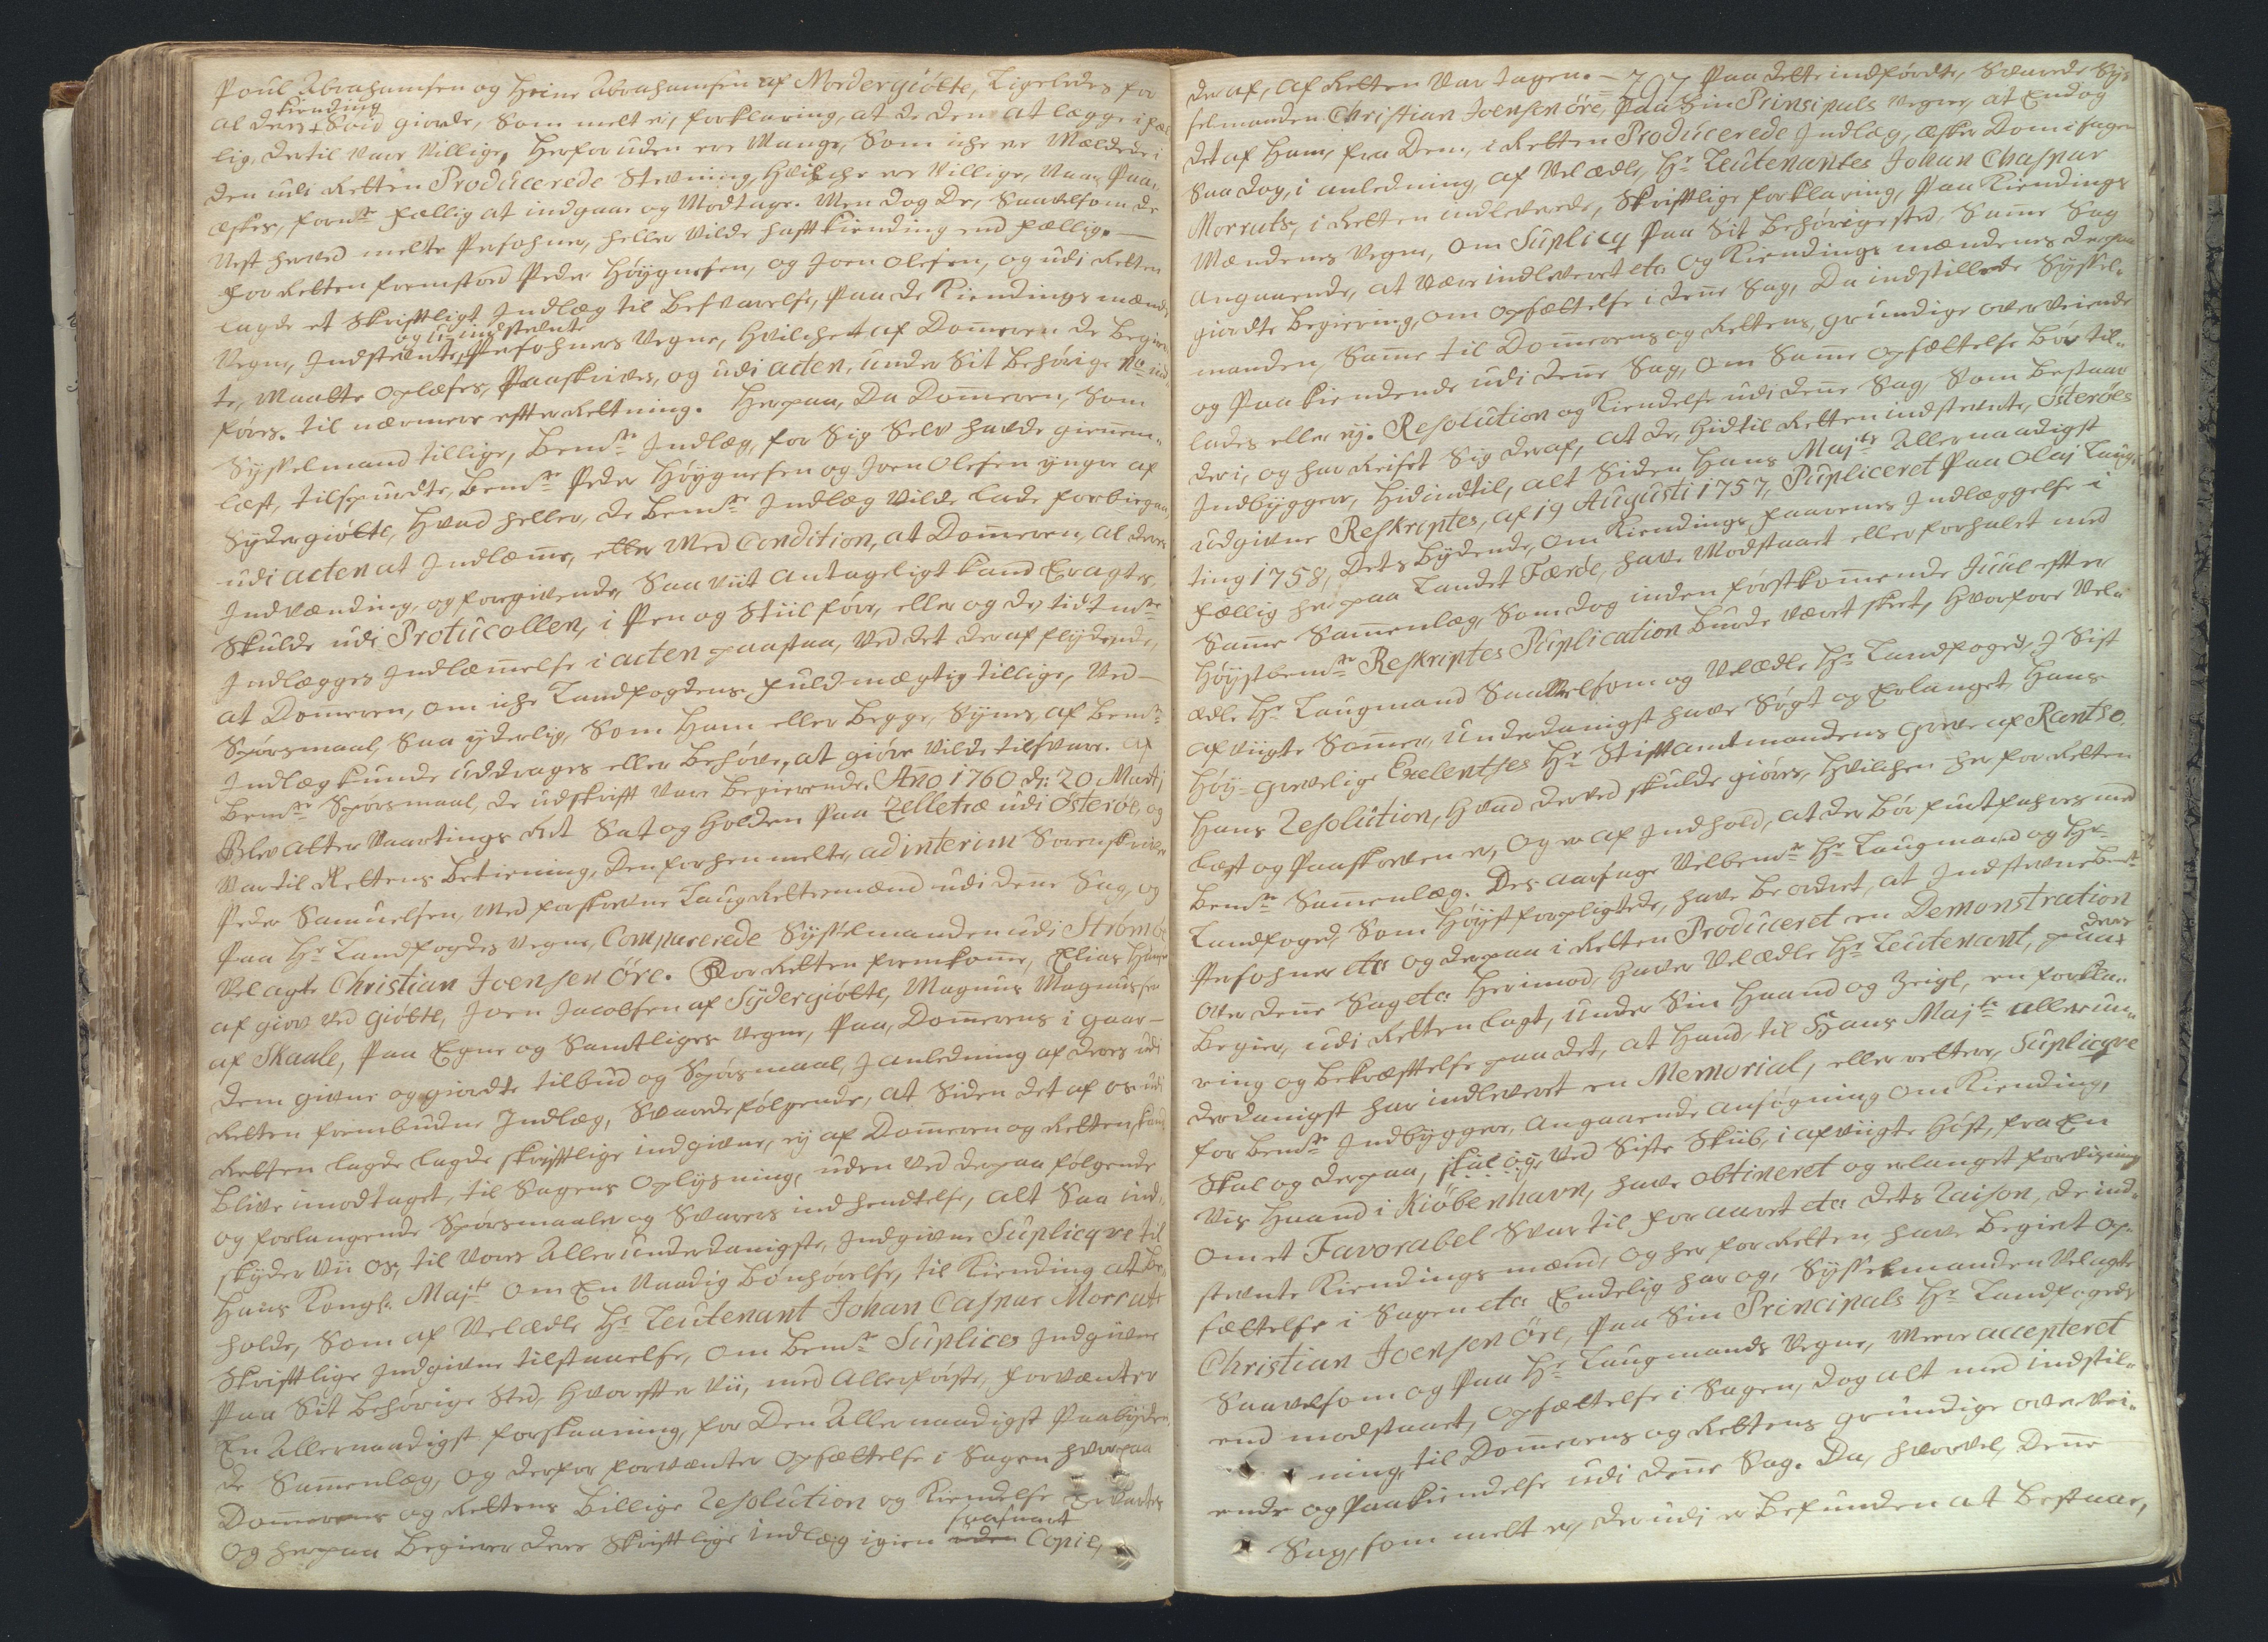 Poul Abrahamsen og Heine Abrahamsen af Nordergiøtte, Ligeledes for
kiending
al deres Soid giorde, Som melt er, forklaring, at de den at lægge i fæl
lig, dertil vare villige, Herforuden ere Mange, Som iche er Mældede i
den udi Retten Producerede Stevning, Hvilche ere Villige, Naar Paa
æskes, fornte fællig at indgaae og Modtage. Men dog De, Saavelsom de
Nest herved melte Persohner, heller vilde haft kiending end fællig.
For Retten fremstod Peder Høygnesen, og Joen Olesen, og udi Retten
lagde et Skriftligt Indlæg til Besvarelse, Paa de Kiendings mænds
og uindstevnte
Vegne, Indstevnte Persohners Vegne, Hvilchet af Dommeren de Begier
te, Maatte Oplæses, Paaskrives, og udi acten, under Sit Behørige No ind
føres. til nærmere efterRetning. Herpaa, Da Dommeren, Som
Sysselmand tillige, Bemte Indlæg, for Sig Selv havde giennem-
læst, tilspurdte, Bemte Peder Høygnesen og Joen Olesen yngre af
Sydergiøtte, Hvad heller, de Bemte Indlæg vilde lade forbiegaa,
udi acten at Indlæmme, eller Med Condition, at Dommeren, al deres
Indvænding, og forgivende, Saa viit antageligt kand Eragtes,
Skulde udi Protucollen, i Pen og Stiil føre, eller og de tidt mte
Indlægges Indlæmmelse i acten paastaa, Ved det deraf flydende,
at Dommeren, om iche Landfogdens fuldmægtig tillige, Ved
Spørsmaal, Saa yderlig, Som Ham eller Begge, Synes, af Bemte
Indlæg kunde Uddrages eller Behøve, at giøre vilde tilsvare. af
Bemte Spørsmaal, de udskrift vare Begierende. Ano 1760 d: 20 Martj
Blev atter Vaartings Ret Sat og Holden Paa Zelletræ udi Østerøe, og
Var til Rettens Betiening, Den forhen melte, ad interim Sorenskriver
Peder Samuelsen, Med forskrevne LaugRettesmænd udi denne Sag, og
Paa Hr Landfogdes Vegne, Comparerede Sysselmanden udi Strømø
Velagte Christian Joensen Øre. For Retten fremkomme, Elias Hansen
af giov ved Giøtte, Joen Jacobsen af Sydergiøtte, Magnus Magnussen
af Skaale, Paa Egne og Samtliges Vegne, Paa, Dommerens i gaar
dem givne og giordte tilbud og Spørsmaal, I anledning af deres udi
Retten frembudne Indlæg, Svarede følgende, at Siden det af os udi
Retten lagde lagde skriftlige indgivne, ej af Dommeren og Retten, kand
Blive imodtaget, til Sagens Oplysning, uden Ved derpaa følgende
og forlangende Spørsmaaler og Svarers indhendtelse, alt Saa ind
skyder vii os, til Vores Allerunderdanigste, Indgivne Suplicqve til
Hans Kongl. Majt om En Naadig bønhørelse, til Kiending at Be-
holde, Som af Velædle Hr Leutenant Johan Caspar Morrats
Skriftlige Indgivne tilstaaelse, om Bemte Suplices Indgivne
Paa Sit Behørige Sted, Hvorefter vii, med Allerførste, forvænter
En Allernaadigst forskaaning, for Den Allernaadigst Paabyden-
de Sammenlæg, og derfor forvænter Opsættelse i Sagen hvorpaa
Dommerens og Rettens Billige Resolution og Kiendelse Ervartes
og herpaa Begierer deres Skriftlige indlæg igien uden Copie,
deraf, af Retten Var tagen. — 297 Paa dette indførdte, Svarede Sys
selmanden Christian Joensen Øre, Paa Sin Prinsipals Vegne, at Endog
det af Ham, fra Dem, i Retten Producerede Indlæg, æsker Dom i sagen
Saa dog, i anledning af Velædle, Hr Leutenantes Johan Chaspar
Morrats, i Retten indleverede, Skriftlige forklaring, Paa Kiendings
Mændenes Vegne, Om Suplicq Paa Sit Behørige sted, Samme Sag
Angaaende, at Være indleveret etc og Kiendings mændenes derpaa
giordte begiering, om Opsættelse i denne Sag, Da indstillede Syssel-
manden, Samme til Dommerens og Rettens, grundige overveiende
og Paakiendende udi denne Sag, om Samme Opsættelse Bør til-
lades eller ej. Resolution og Kiendelse udi denne Sag, Som Bestaar
deri, og har Reiset Sig deraf, at de, Hid til Retten indstevnte, Østerøes
Indbyggere, Hid indtil, alt Siden Hans Majts Allernaadigst
udgivne Reskriptes, af 19 Augusti 1757, Pupliceret Paa Olaj Laug-
ting 1758, Dets Bydende, om Kiendings faarenes Indlæggelse i
fællig her paa Landet Færøe, have Modstaaet eller forhalet med
Samme Sammenlæg, Som dog inden førstkommende Juul efter
Høystbemte Reskriptes Puplication Burde været skeet, Hvorfore Vel-
ædle Hr Laugmand Saavelsom og Velædle Hr Landfoged, I Sist
afvigte Sommer, underdanigst have Søgt og Erlanget, Hans
Høy-grevelige Exelentses Hr Stiftamtmandens greve af Rantso
Hans Resolution, Hvad derved skulde giøres, Hvilchen her for Retten
læst og Paaskreven er, Og er af Indhold, at der bør fuldføres med
Bemte Sammenlæg. Des aarsage Velbemte Hr Laugmand og Hr
Landfoged, Som Høystforpligtede, have Beordret, at Indstevne Bemte
Persohner etc og derpaa i Retten Produceret en Demonstration
deres
over denne Sag etc Herimod, haver Velædle Hr Leutenant, paa
Begier, udi Retten lagt, under Sin Haand og Zeigl, en forkla-
ring og Bekræftelse paa det, at Hand, til Hans Majts allerun-
derdanigst har indleveret en Memorial, eller rettere, Suplicqve
for Bemte Indbyggere, Angaaende ansøgning om Kiending,
Skal og derpaa, skal og, Ved Siste Skib, i afvigte Høst, fra En
Vis Haand i Kiøbenhavn, have obtineret og erlanget forviisning
om et Favorabel Svar til foraaret etc Dets Raison, de ind-
stevnte Kiendings mænd, og her for Retten, have Begiert Op-
sættelse i Sagen etc Endelig har og, Sysselmanden Velagte
Christian Joensen Øre, Paa Sin Principals Hr Landfogeds
Saavelsom og Paa Hr Laugmands Vegne, Mere accepteret
end modstaaet, Opsættelse i Sagen, dog alt med indstil-
ning, til Dommerens og Rettens grundige overvei-
ende og Paakiendelse udi denne Sag. Da, hvorvel, Denne
Sag, som melt er, derudi er Befunden at Bestaae,